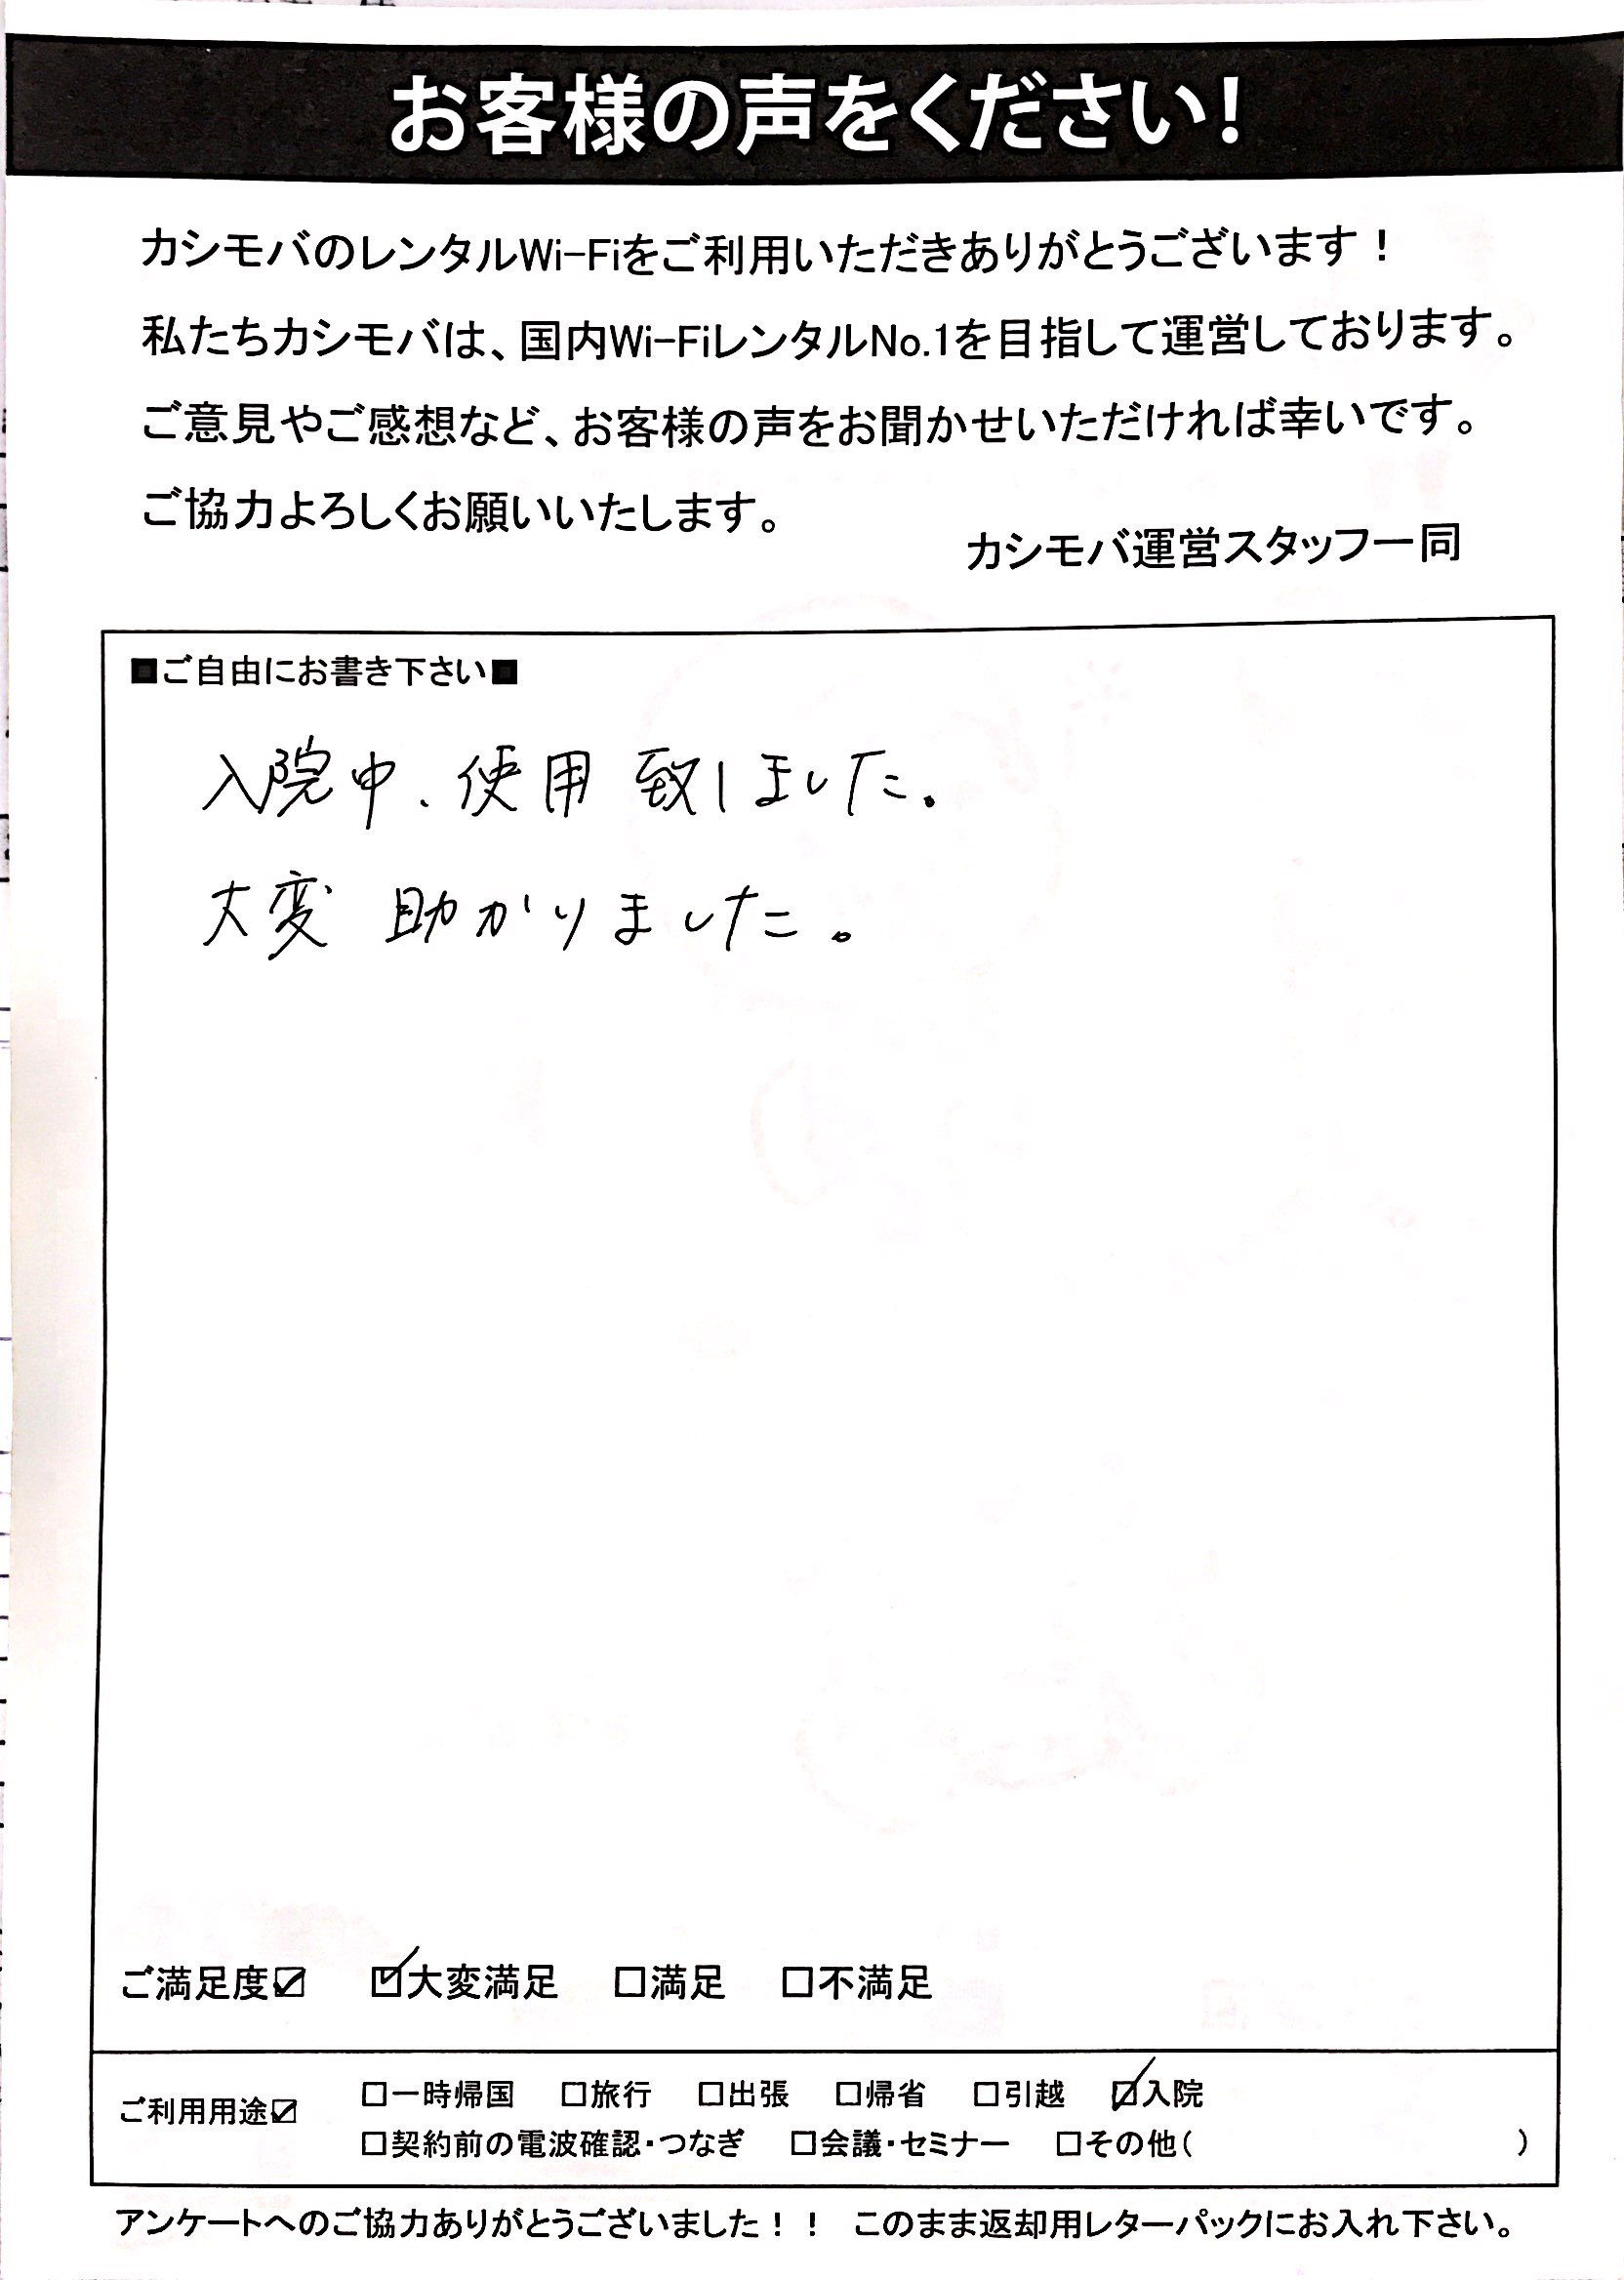 お客様の声をください!
カシモバのレンタルWi-Fiをご利用いただきありがとうございます！
私たちカシモバは、国内Wi-FiレンタルNo.1を目指して運営しております。
ご意見やご感想など、お客様の声をお聞かせいただければ幸いです。
ご協力よろしくお願いいたします。
カシモバ運営スタッフ一同
■ご自由にお書き下さい■
入院中、使用致しました。
大変助かりました。
ご満足度☑ ☑大変満足 □満足 □不満足
ご利用用途☑ □一時帰国 □旅行 □出張 □帰省 □引越 ☑入院
□契約前の電波確認・つなぎ □会議・セミナー □その他( )
アンケートへのご協力ありがとうございました！！ このまま返却用レターパックにお入れ下さい。